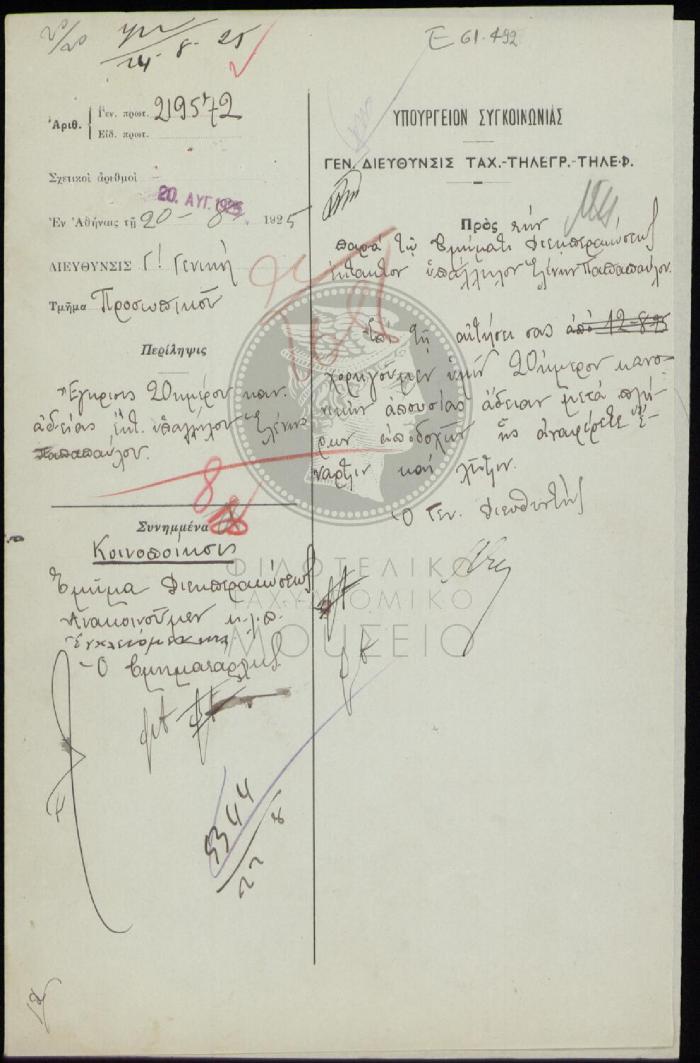 24-8-25
Ε 61.492
Ἀριθ.
Γεν. πρωτ. 219572
Εἰδ. πρωτ.
Σχετικοὶ ἀριθμοὶ
20. ΑΥΓ. 1925
Ἐν Ἀθήναις τῇ 20-8- 1925
ΔΙΕΥΘΥΝΣΙΣ Γ! Γενικὴ
Τμῆμα Προσωπικοῦ
Περίληψις
Ἔγκρισις 20ημέρου καν.
ἀδείας ἐκτ. ὑπαλλήλου Ἑλένης
Παπαπαύλου.
8
Συνημμένα
Κοινοποίησις
Τμῆμα Διεκπεραιώσεως
Ἀνακοινοῦμεν
Ὁ Τμηματάρχης
5344
22 8
ΥΠΟΥΡΓΕΙΟΝ ΣΥΓΚΟΙΝΩΝΙΑΣ
ΓΕΝ. ΔΙΕΥΘΥΝΣΙΣ ΤΑΧ.-ΤΗΛΕΓΡ.-ΤΗΛΕΦ.
Πρὸς τὴν
παρὰ τῷ Τμήματι Διεκπεραιώσεως
ἔκτακτον ὑπάλληλον Ἑλένην Παπαπαύλου.
Ἐπὶ τῇ αἰτήσει σας ἀπὸ 12-8-25
χορηγοῦμεν ὑμῖν 20ήμερον κανο-
νικὴν ἀπουσίας ἄδειαν μετὰ πλή-
ρων ἀποδοχῶν ἧς ἀναφέρετε ἔ-
ναρξιν καὶ λῆξιν.
Ὁ Γεν. Διευθυντὴς
ΦΙΛΟΤΕΛΙΚΟ
ΤΑΧΥΔΡΟΜΙΚΟ
ΜΟΥΣΕΙΟ